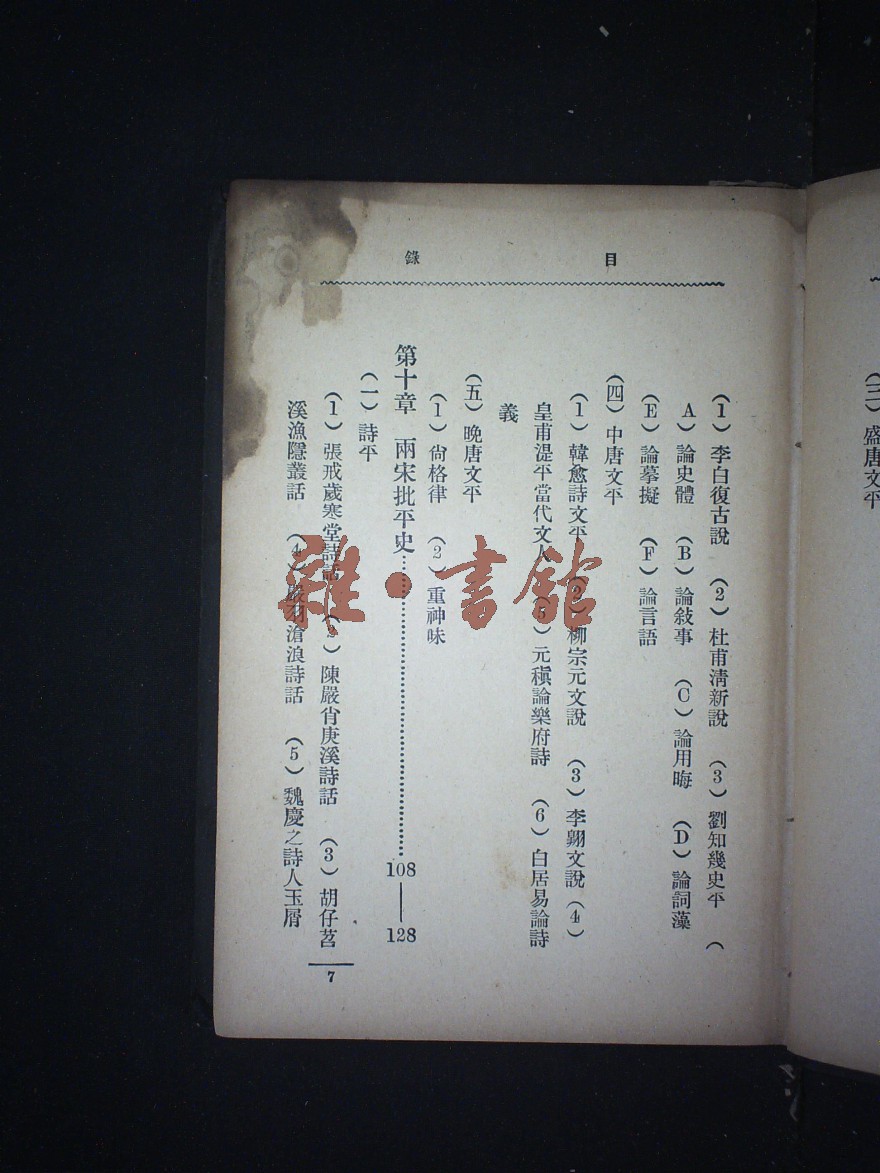 (三) 盛唐文平
目錄
(1) 李白復古說 (2) 杜甫清新說 (3) 劉知幾史平 (
A) 論史體 (B) 論敍事 (C) 論用晦 (D) 論詞藻
(E) 論摹擬 (F) 論言語
(四) 中唐文平
(1) 韓愈詩文平 (2) 柳宗元文說 (3) 李翺文說 (4)
皇甫湜平當代文人 (5) 元稹論樂府詩 (6) 白居易論詩
義
(五) 晚唐文平
(1) 尙格律 (2) 重神味
第十章 兩宋批平史……108—128
(一) 詩平
(1) 張戒歲寒堂詩話 (2) 陳嚴肖庚溪詩話 (3) 胡仔苕
溪漁隱叢話 (4) 嚴羽滄浪詩話 (5) 魏慶之詩人玉屑
7
雜·書館